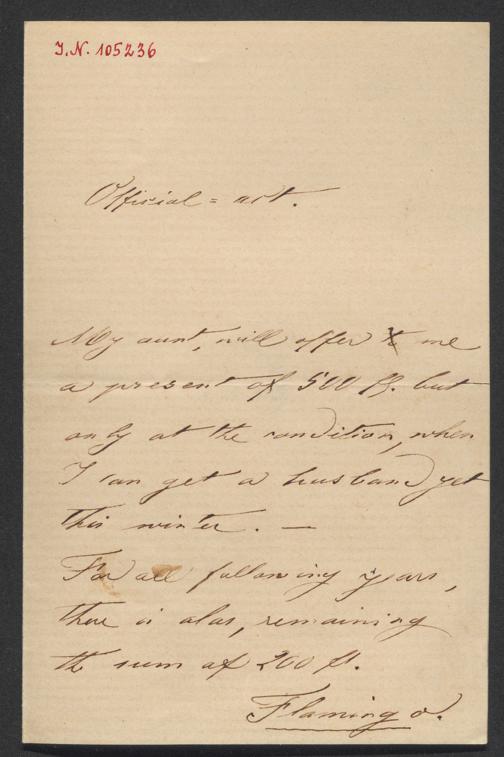 I.N. 105236
Official = act.
My aunt, will offer to me
a present of 500 fl. but
only at the condition, when
I can get a husband yet
this winter. —
For all following years,
there is alas, remaining
the sum of 200 fl.
Flamingo.